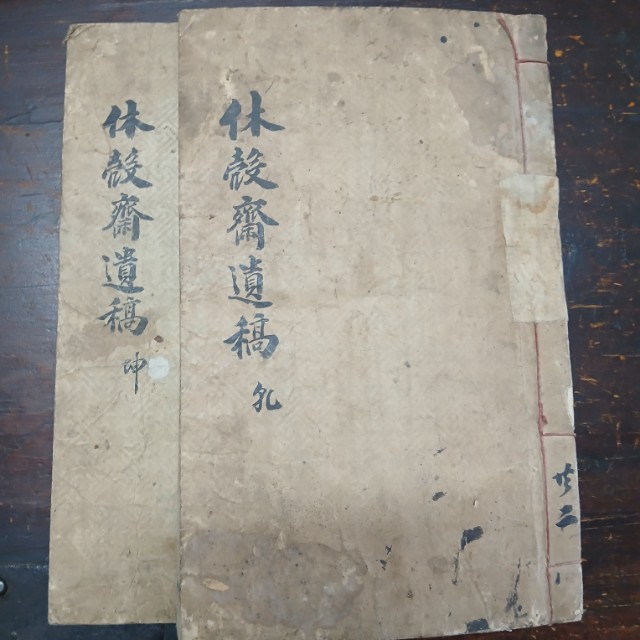 共二
休殼齋遺稿 乾
休殼齋遺稿 坤